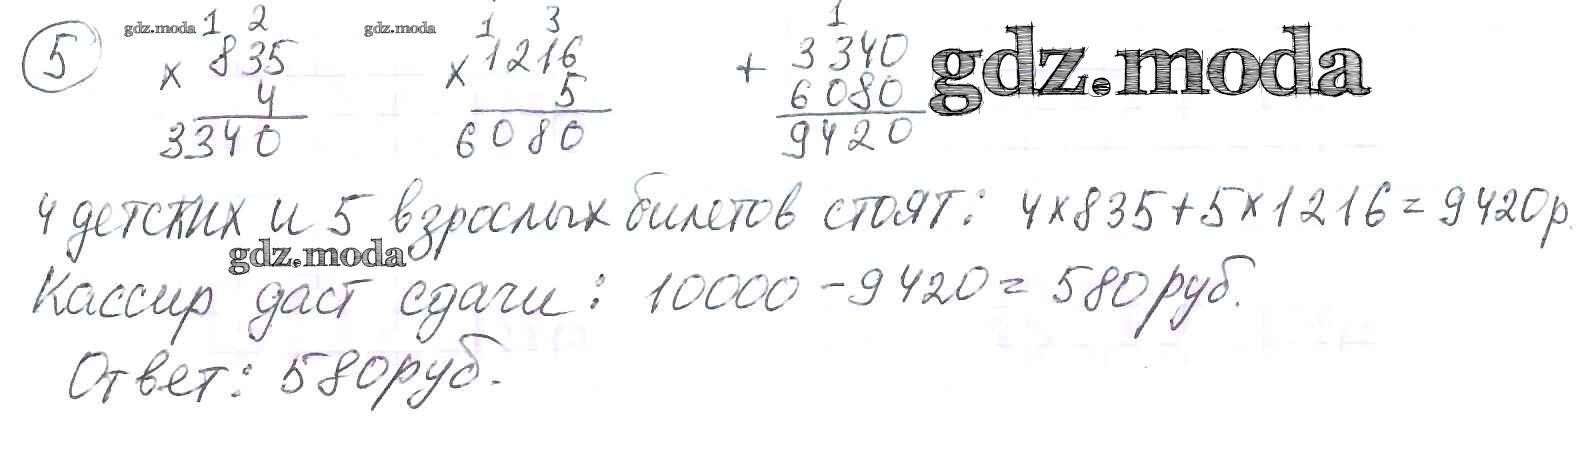 5
gdz.moda
1 2
× 835
4
3340
gdz.moda
1 3
× 1216
5
6080
1
+ 3340
6080
9420
gdz.moda
4 детских и 5 взрослых билетов стоят: 4×835+5×1216=9420р.
gdz.moda
Кассир даст сдачи: 10000-9420=580руб.
Ответ: 580руб.